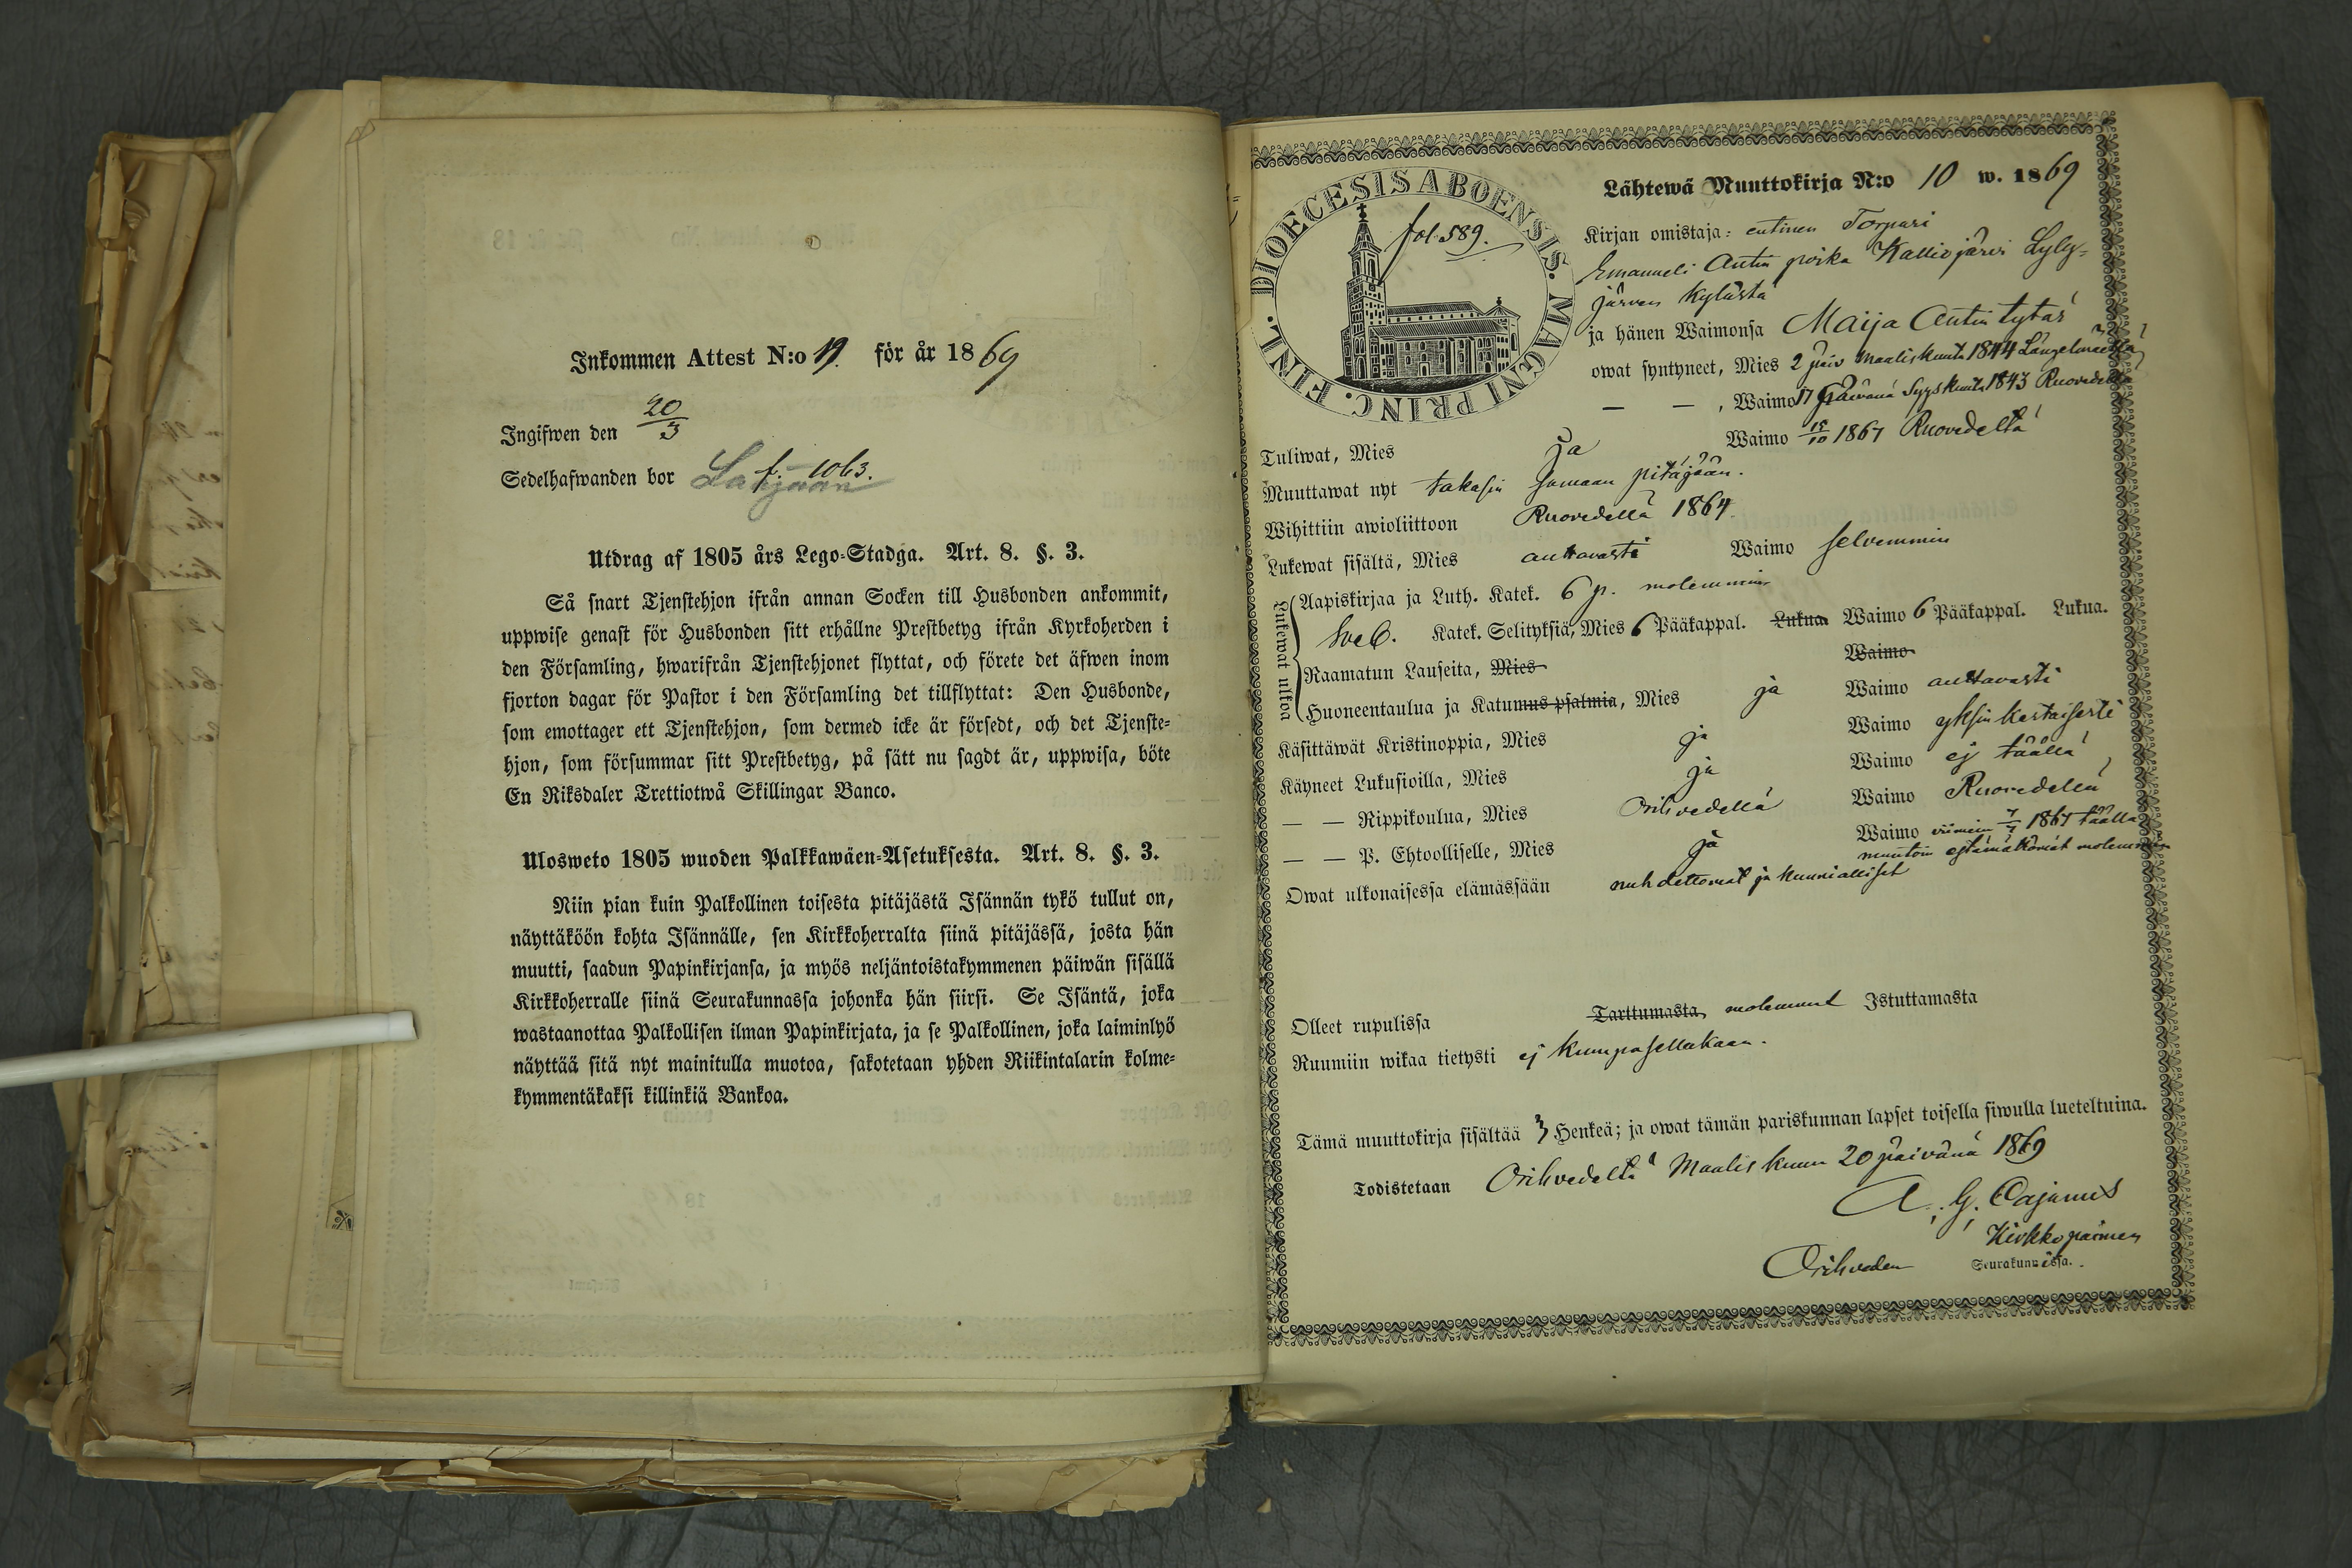 Inkommen Attest N:o 19. för år 1869
Ingifwen den 20/3
Sedelhafwanden bor f. 1063.
Utdrag af 1805 års Lego-Stadga. Art. 8. §. 3.
Så snart Tjenstehjon ifrån annan Socken till Husbonden ankommit,
uppwise genast för Husbonden sitt erhållne Prestbetyg ifrån Kyrkoherden i
den Församling, hwarifrån Tjenstehjonet flyttat, och förete det äfwen inom
fjorton dagar för Pastor i den Församling det tillflyttat: Den Husbonde,
som emottager ett Tjenstehjon, som dermed icke är försedt, och det Tjenste-
hjon, som försummar sitt Prestbetyg, på sätt nu sagdt är, uppwisa, böte
En Riksdaler Trettiotwå Skillingar Banco.
Ulosweto 1805 wuoden Palkkawäen-Asetuksesta. Art. 8. §. 3.
Niin pian kuin Palkollinen toisesta pitäjästä Isännän tykö tullut on,
näyttäköön kohta Isännälle, sen Kirkkoherralta siinä pitäjässä, josta hän
muutti, saadun Papinkirjansa, ja myös neljäntoistakymmenen päiwän sisällä
Kirkkoherralle siinä Seurakunnassa johonka hän siirsi. Se Isäntä, joka
wastaanottaa Palkollisen ilman Papinkirjata, ja se Palkollinen, joka laiminlyö
näyttää sitä nyt mainitulla muotoa, sakotetaan yhden Riikintalarin kolme-
kymmentäkaksi killinkiä Bankoa.
DIOECESIS ABOENSIS. MAGNI PRINC. FINL.
fol. 589.
Lähtewä Muuttokirja N:o 10 w. 1869
Kirjan omistaja: entinen Torpari
Emanueli Antin poika Kalliojärvi Lyly-
järven kylästä
ja hänen Waimonsa Maija Antin tytär
owat syntyneet, Mies 2 päiv Maaliskuuta 1844 Längelmäellä
— — , Waimo 17 päivänä Syyskuuta 1843 Ruovedellä
Tuliwat, Mies ja Waimo 15/10 1867 Ruovedeltä
Muuttawat nyt takasin samaan pitäjään.
Wihittiin awioliittoon Ruovedellä 1864
Lukewat sisältä, Mies auttavasti Waimo selvemmin
Lukewat ulkoa
Aapiskirjaa ja Luth. Katek. 6 p. molemmin
Sveb. Katek. Selityksiä, Mies 6 Pääkappal. Lukua. Waimo 6 Pääkappal. Lukua.
Raamatun Lauseita, Mies Waimo
Huoneentaulua ja Katumus psalmia, Mies ja Waimo auttavasti
Käsittäwät Kristinoppia, Mies ja Waimo yksinkertaisesti
Käyneet Lukusioilla, Mies ja Waimo ej täällä
— — Rippikoulua, Mies Orihvedellä Waimo Ruovedellä
— — P. Ehtoolliselle, Mies ja Waimo viimein 7/7 1867 täällä
muutoin estämättömät molemmin
Owat ulkonaisessa elämässään nuhdettomat ja kunnialliset
Olleet rupulissa Tarttumasta molemmat Istuttamasta
Ruumiin wikaa tietysti ej kumpasellakaan.
Tämä muuttokirja sisältää 3 Henkeä; ja owat tämän pariskunnan lapset toisella siwulla lueteltuina.
Todistetaan Orihvedeltä Maaliskuun 20 päivänä 1869
A. G. Cajanus
Kirkkopaimen
Orihveden Seurakunnissa.